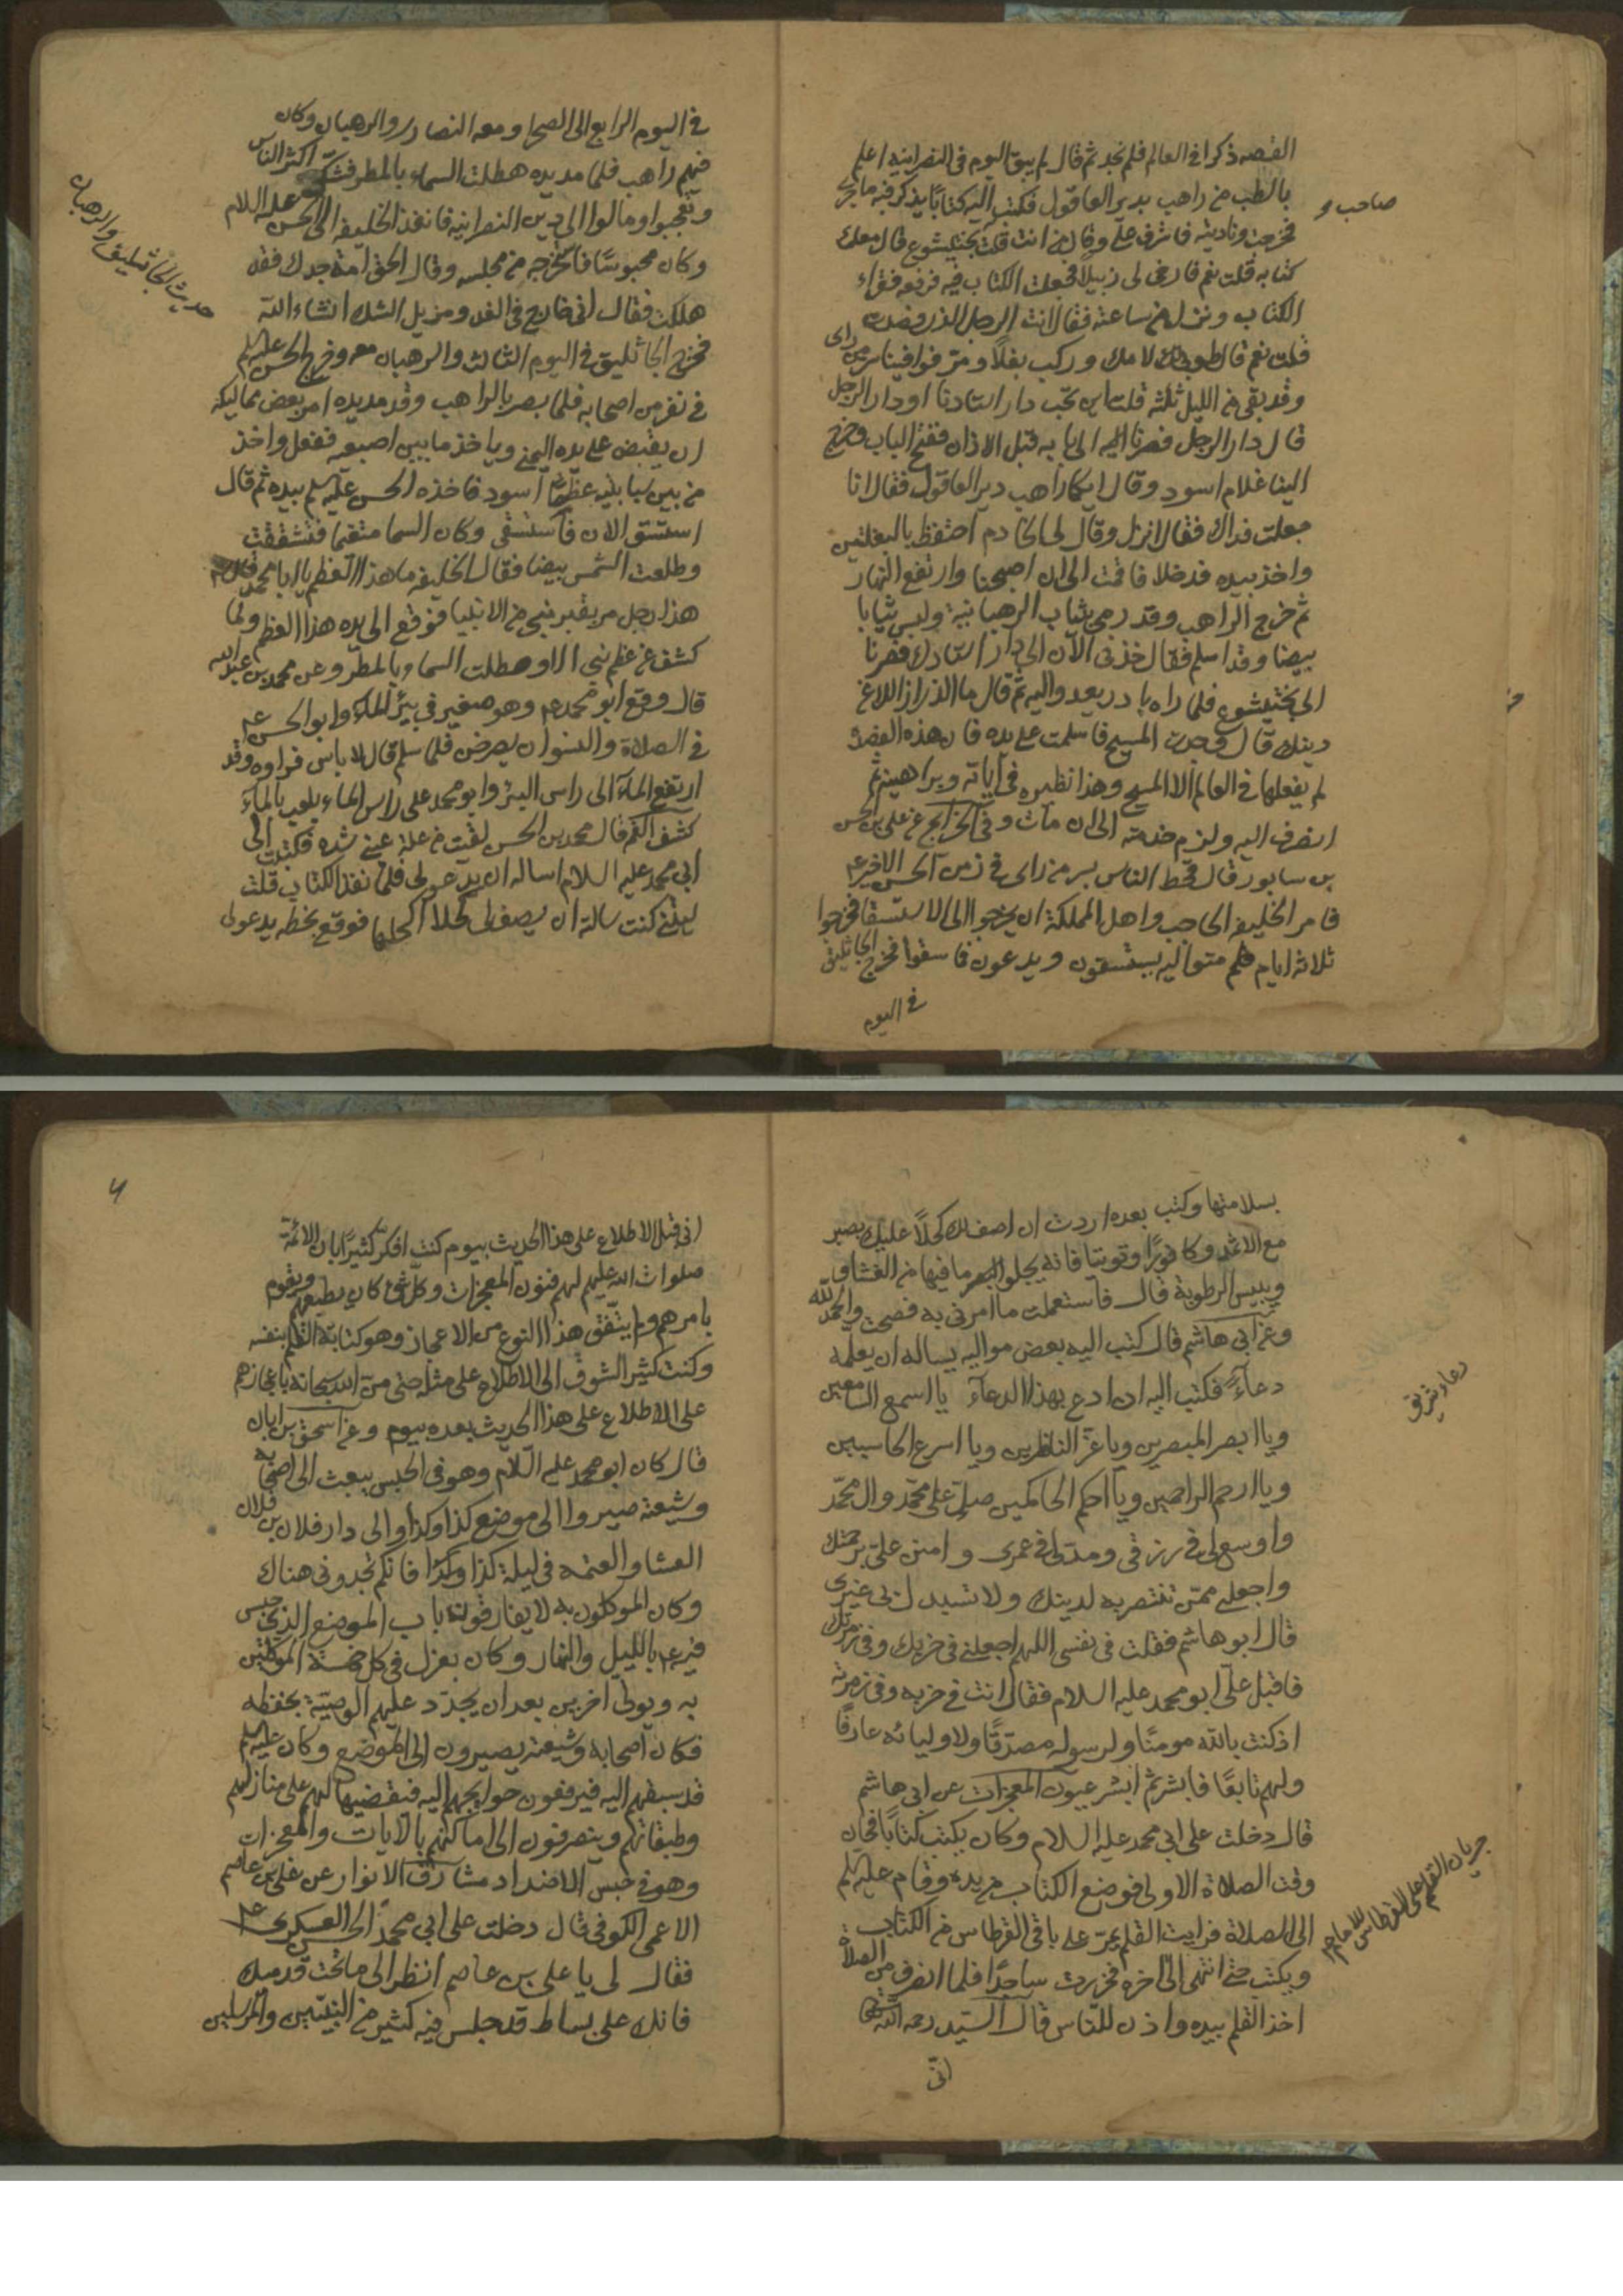 القصه ذكرا في العالم فلم نجد ثم قال لم يبق اليوم في النصرانيه اعلم
بالطب من راهب بدير العاقول فكتب اليه كتابا يذكر فيه ما جرى
صاحب
فخرجت وناديته فاشرف علي وقال من انت قلت بختيشوع قال معك
كتابه قلت نعم فارخى لى زبيلا فجعلت الكتاب فيه فرفعه فقراء
الكتاب ونزل من ساعته فقال انت الرجل الذى فصدت
قلت نعم قال طوبى لامك وركب بغلا ومر فوافينا سر من راى
وقد بقى من الليل ثلثه قلت اين تحب دار استادنا او دار الرجل
قال دار الرجل فصرنا الى بابه قبل الاذان ففتح الباب وخرج
الينا غلام اسود وقال ايكما راهب دير العاقول فقال انا
جعلت فداك فقال انزل وقال لى الخادم احتفظ بالبغلتين
واخذ بيده فدخلا فاقمت الى ان اصبحنا وارتفع النهار
ثم خرج الراهب وقد رمى بثياب الرهبانية ولبس ثيابا
بيضا وقد اسلم فقال خذنى الآن الى دار استادك فصرنا
الى بختيشوع فلما راه بادر يعدو اليه ثم قال ما الذى ازالك عن
دينك قال وجدت المسيح فاسلمت على يده فان هذه الفصدة
لم يفعلها في العالم الا المسيح وهذا نظيره في آياته وبراهينه ثم
انصرف اليه ولزم خدمته الى ان مات وفي الخرايج عن على بن الحسن
بن سابور قال قحط الناس بسر من راى في زمن الحسن الاخير ع
فامر الخليفه الحاجب واهل المملكة ان يخرجوا الى الاستسقا فخرجوا
ثلاثه ايام متواليه يستسقون ويدعون فما سقوا فخرج الجاثليق
في اليوم
في اليوم الرابع الى الصحرا ومعه النصارى والرهبان وكان
فيهم راهب فلما مد يده هطلت السماء بالمطر فشك اكثر الناس
وتعجبوا ومالوا الى دين النصرانية فانفذ الخليفه الى الحسن عليه السلام
وكان محبوسا فاستخرجه من مجلسه وقال الحق امة جدك فقد
هلكت فقال انى خارج في الغد ومزيل الشك انشاء الله
فخرج الجاثليق في اليوم الثالث والرهبان معه وخرج الحسن عليه السلم
في نفر من اصحابه فلما بصر بالراهب وقد مد يده امر بعض مماليكه
ان يقبض على يده اليمنى وياخذ ما بين اصبعيه ففعل واخذ
من بين سبابتيه عظما اسود فاخذه الحسن عليه السلم بيده ثم قال
استسق الان فاستسقى وكان السما متغيما فتشققت
وطلعت الشمس بيضا فقال الخليفه ما هذا العظم يا ابا محمد قال
هذا رجل مر بقبر نبى من الانبيا فوقع الى يده هذا العظم وما
كشف عن عظم نبي الا وهطلت السماء بالمطر وعن محمد بن عبد الله
قال وقع ابو محمد ع وهو صغير في بئر الماء وابو الحسن ع
في الصلاة والنسوان يصرخن فلما سلم قال لا باس فراوه وقد
ارتفع المآء الى راس البئر وابو محمد على راس الماء يلعب بالمآء
كشف الغم قال محمد بن الحسن لقيت من علة عينى شده فكتبت الى
ابى محمد عليه السلام اساله ان يدعو لى فلما نفذ الكتاب قلت
ليتنى كنت سالته ان يصف لى كحلا اكحلها فوقع بخطه يدعو لى
حديث الجاثليق والرهبان
بسلامتها وكتب بعده اردت ان اصف لك كحلا عليك بصبر
مع الاثمد وكافورا وتوتيا فانه يجلو البصر ما فيها من الغشاو
وييبس الرطوبة قال فاستعملت ما امرنى به فصحت والحمد لله
وعن ابى هاشم قال كتب اليه بعض مواليه يساله ان يعلمه
دعآء فكتب اليه ان ادع بهذا الدعآء يا اسمع السامعين
دعاء شريف
ويا ابصر المبصرين ويا عز الناظرين ويا اسرع الحاسبين
ويا ارحم الراحمين ويا احكم الحاكمين صل على محمد وال محمد
واوسع لى في رزقى ومد لى في عمرى وامنن على برحمتك
واجعلنى ممن تنتصر به لدينك ولا تستبدل بى غيرى
قال ابو هاشم فقلت في نفسى اللهم اجعلنى في حزبك وفي زمرتك
فاقبل على ابو محمد عليه السلام فقال انت في حزبه وفي زمرته
اذ كنت بالله مومنا ولرسوله مصدقا ولاوليائه عارفا
ولهم تابعا فابشر ثم ابشر عيون المعجزات عن ابى هاشم
قال دخلت على ابى محمد عليه السلام وكان يكتب كتابا فحان
وقت الصلاة الاولى فوضع الكتاب من يده وقام عليه السلم
الى الصلاة فرايت القلم يمر على باقى القرطاس من الكتاب
ويكتب حتى انتهى الى آخره فخررت ساجدا فلما انصرف من الصلاة
اخذ القلم بيده واذن للناس قال السيد رحمه الله
جريان القلم على القرطاس للامام ع
انى
٦
انى قبل الاطلاع على هذا الحديث بيوم كنت افكر كثيرا بان الائمة
صلوات الله عليهم لهم فنون المعجزات وكل شئ كان يطيعهم ويقوم
بامرهم ولم يتفق هذا النوع من الاعجاز وهو كتابة القلم بنفسه
وكنت كثير الشوق الى الاطلاع على مثله حتى من الله سبحانه باعجازهم
على الاطلاع على هذا الحديث بعده بيوم وعن اسحق بن ابان
قال كان ابو محمد عليه السلام وهو في الحبس يبعث الى اصحابه
وشيعته صيروا الى موضع كذا وكذا والى دار فلان بن فلان
العشا والعتمه في ليلة كذا وكذا فانكم تجدونى هناك
وكان الموكلون به لا يفارقون باب الموضع الذى حبس
فيه ع بالليل والنهار وكان يعزل في كل خمسة الموكلين
به ويولى اخرين بعد ان يجدد عليهم الوصية بحفظه
فكان اصحابه وشيعته يصيرون الى الموضع وكان عليه السلم
قد سبقهم اليه فيرفعون حوايجهم اليه فيقضيها لهم على منازلهم
وطبقاتهم وينصرفون الى اماكنهم بالآيات والمعجزات
وهو في حبس الاضداد مشارق الانوار عن على بن عاصم
الاعمى الكوفي قال دخلت على ابي محمد العسكرى ع
فقال لى يا على بن عاصم انظر الى ما تحت قدميك
فانك على بساط قد جلس فيه كثير من النبيين والمرسلين